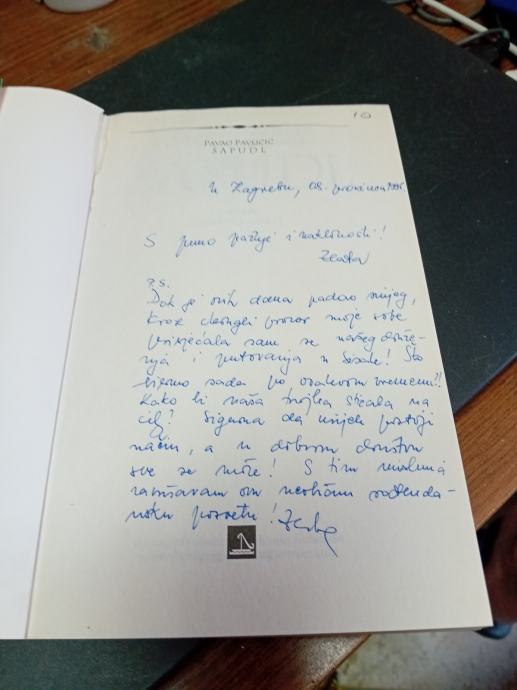 10
PAVAO PAVLIČIĆ
ŠAPUDL
u Zagrebu, 08. prosinca 1995
S puno pažnje i naklonosti!
Zlata
P.S.
Dok je ovih dana padao snijeg,
kroz okrugli prozor moje sobe
prisjećala sam se našeg druže-
nja i putovanja u Sisak! Što
bismo sada po ovakvom vremenu?!
Kako bi naša trojka stizala na
cilj? Sigurna da uvijek postoji
način, a u dobrom društvu
sve se može! S tim mislima
završavam ovu neobičnu rođenda-
nsku posvetu!